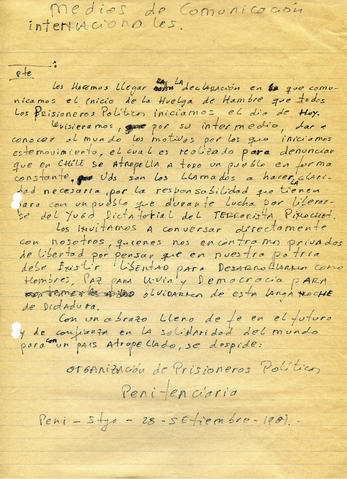 Medios de Comunicación
internacionales.
pte
Les Hacemos llegar la declaración en que comu-
nicamos el inicio de la Huelga de Hambre que todos
los Prisioneros Políticos iniciamos el día de Hoy.
Quisieramos, que por su intermedio, dar a
conocer al mundo los motivos por los que iniciamos
este movimiento, el cual es realizado para denunciar
que en CHILE se ATROPELLA A todo un pueblo en forma
constante, Uds son los llamados a hacer clari-
dad necesaria, por la responsabilidad que tienen
para con un pueblo que durante lucha por liberar-
se del Yugo Dictatorial del TERRORISTA, PINOCHET.
Los INVITAMOS A conversar directamente
con nosotros, quienes nos encontramos privados
de libertad por pensar que en nuestra patria
debe Existir LIBERTAD para DESARROLLARNOS como
Hombres, PAZ para vivir y Democracia PARA
olvidarnos de esta larga NOCHE
de Dictadura.
Con un abrazo lleno de fe en el futuro
y de confianza en la solidaridad del mundo
para con un PAIS ATROPELLADO, se despide:
ORGANIZACIÓN de Prisioneros Políticos
Penitenciaria
Peni - Stgo - 28 - SETIEMBRE - 1987.